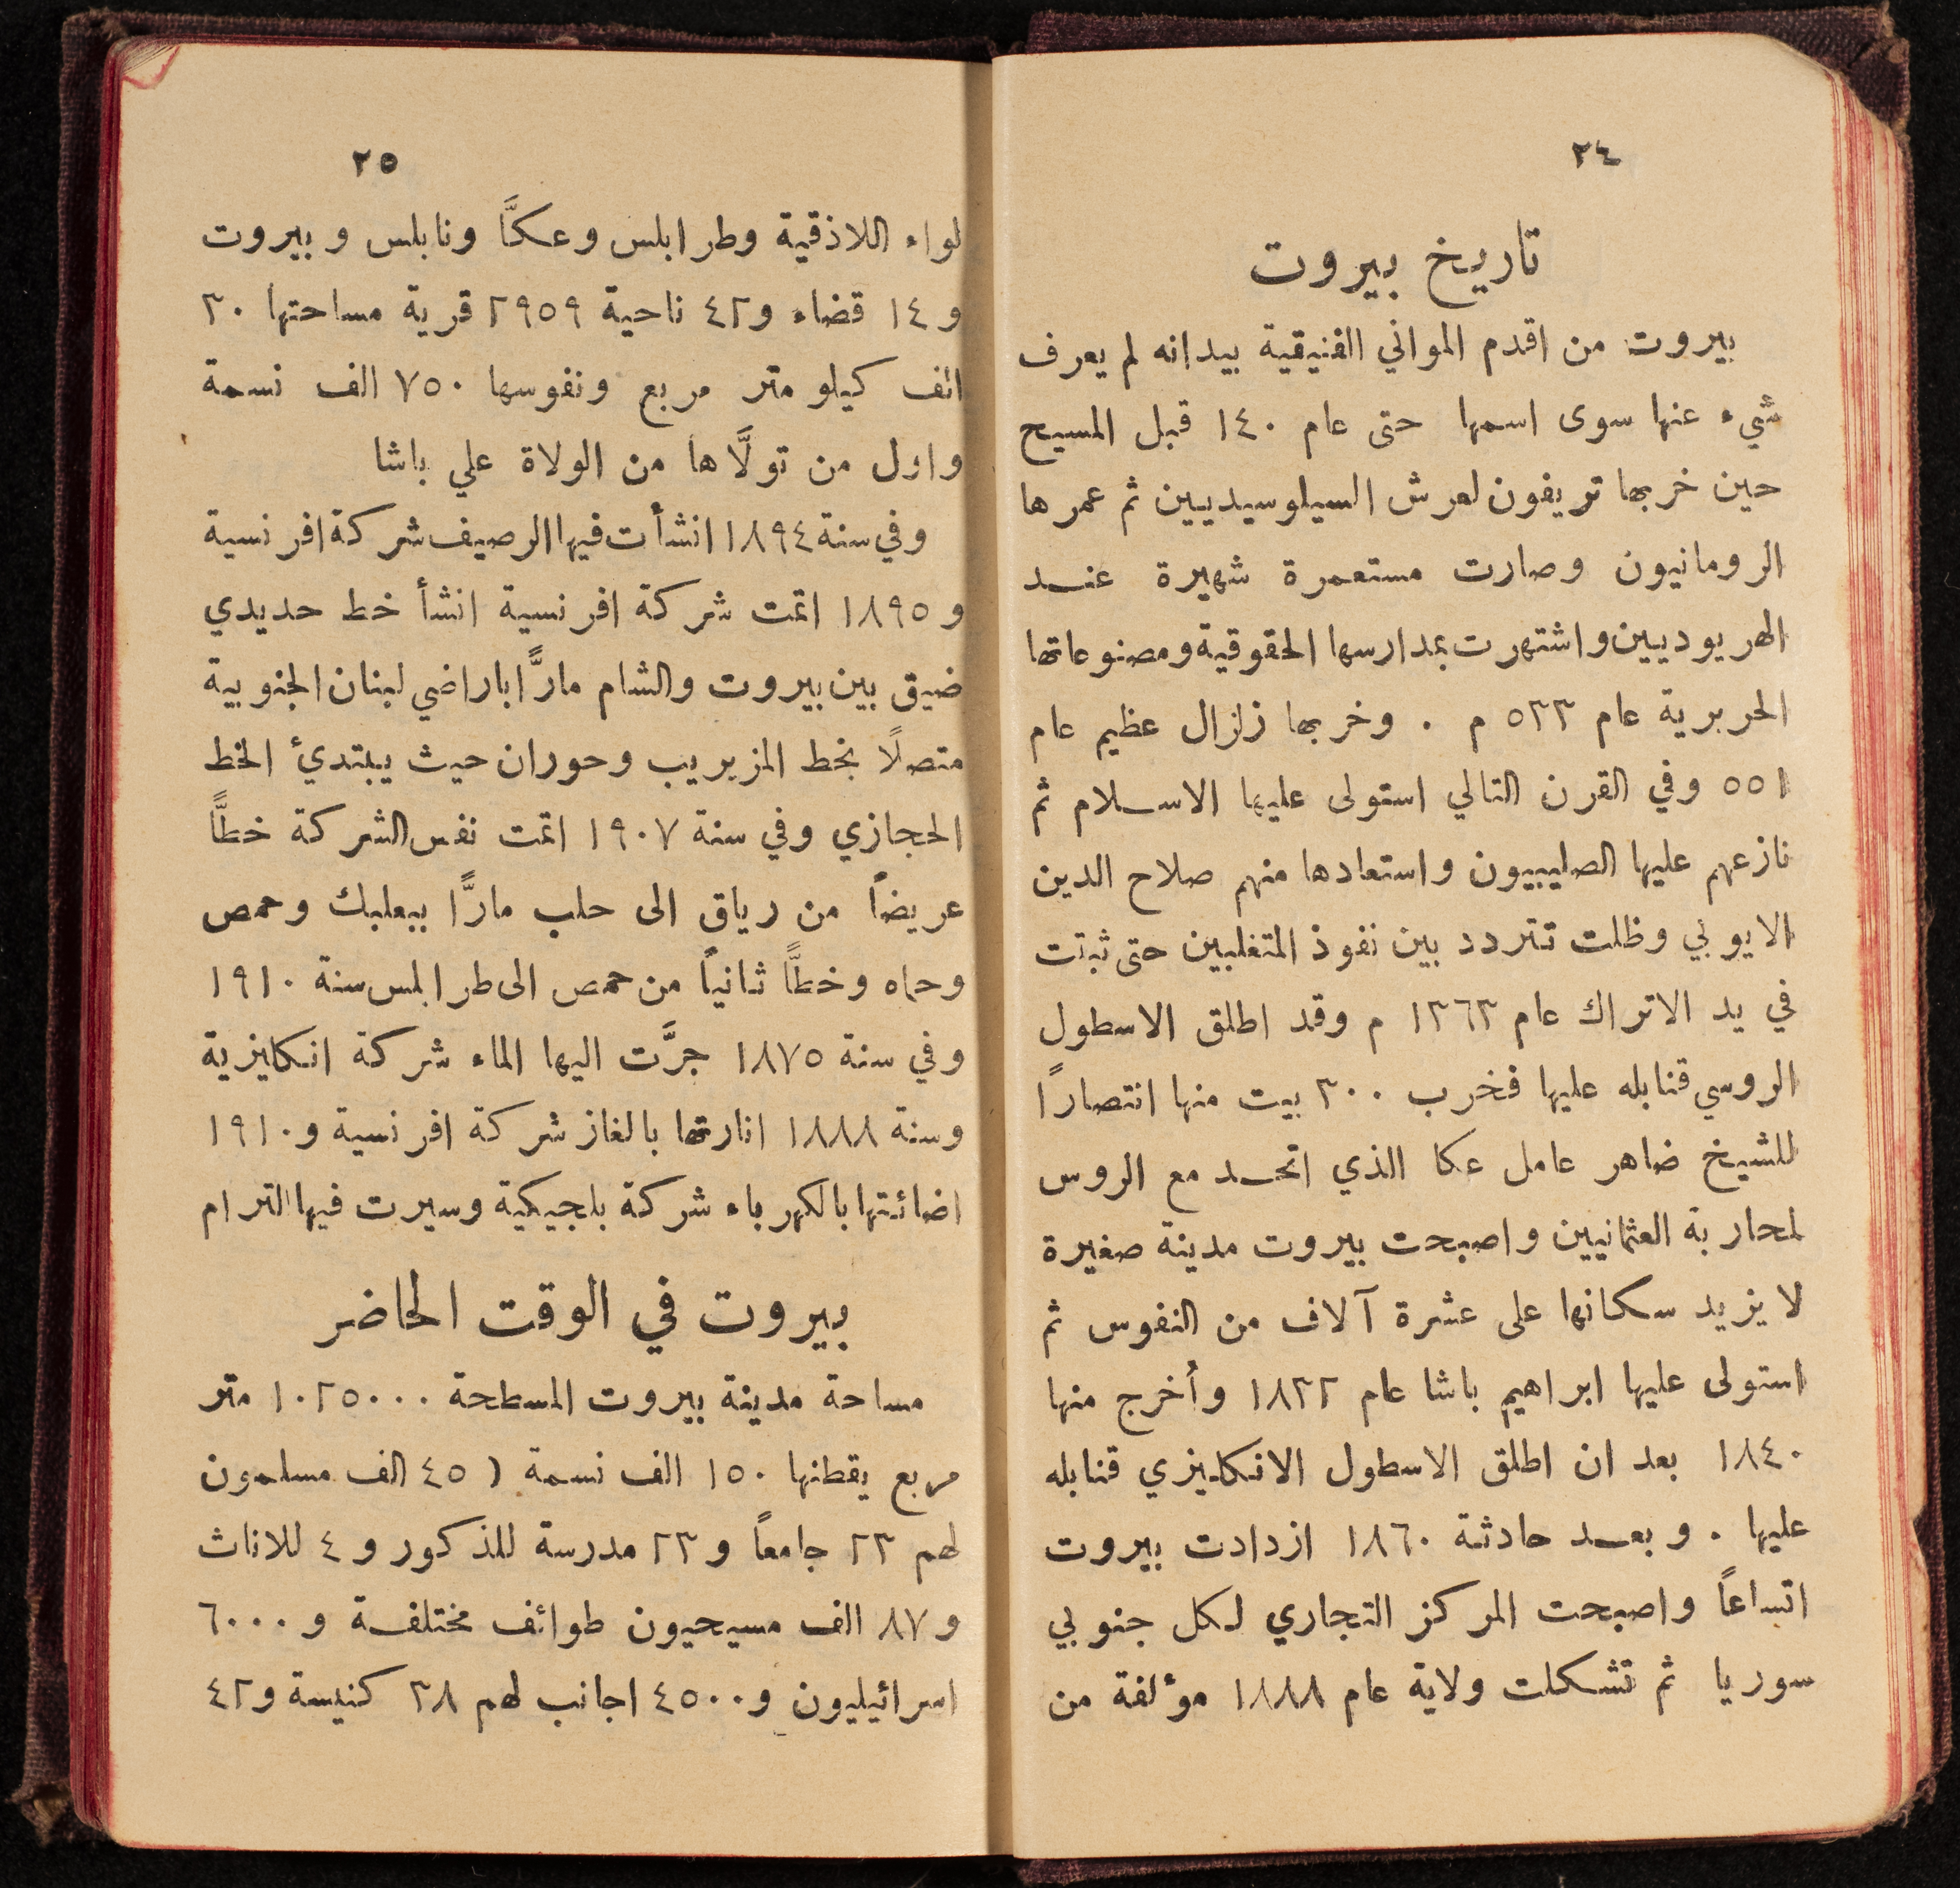 ٢٤
تاريخ بيروت
بيروت من اقدم المواني الفنيقية بيدانه لم يعرف
شيء عنها سوى اسمها حتى عام ١٤٠ قبل المسيح
حين خربها تريفون لعرش السيلوسيديين ثم عمرها
الرومانيون وصارت مستعمرة شهيرة عند
الهريوديين واشتهرت بمدارسها الحقوقية ومصنوعاتها
الحريرية عام ٥٣٣ م . وخربها زلزال عظيم عام
٥٥١ وفي القرن التالي استولى عليها الاسلام ثم
نازعهم عليها الصليبيون واستعادها منهم صلاح الدين
الايوبي وظلت تتردد بين نفوذ المتغلبين حتى ثبتت
في يد الاتراك عام ١٣٦٣ م وقد اطلق الاسطول
الروسي قنابله عليها فخرب ٣٠٠ بيت منها انتصارًا
للشيخ ضاهر عامل عكا الذي اتحد مع الروس
لمحاربة العثمانيين واصبحت بيروت مدينة صغيرة
لا يزيد سكانها على عشرة آلاف من النفوس ثم
استولى عليها ابراهيم باشا عام ١٨٣٢ وأُخرج منها
١٨٤٠ بعد ان اطلق الاسطول الانكليزي قنابله
عليها . وبعد حادثة ١٨٦٠ ازدادت بيروت
اتساعاً واصبحت المركز التجاري لكل جنوبي
سوريا ثم تشكلت ولاية عام ١٨٨٨ مؤلفة من
٢٥
لواء اللاذقية وطرابلس وعكَّا ونابلس وبيروت
و١٤ قضاء و٤٢ ناحية ٢٩٥٩ قرية مساحتها ٣٠
الف كيلو متر مربع ونفوسها ٧٥٠ الف نسمة
واول من تولَّاها من الولاة علي باشا
وفي سنة ١٨٩٤ انشأت فيها الرصيف شركة افرنسية
و١٨٩٥ اتمت شركة افرنسية انشأ خط حديدي
ضيق بين بيروت والشام مارًّا باراضي لبنان الجنوبية
متصلًا بخط المزيريب وحوران حيث يبتدئ الخط
الحجازي وفي سنة ١٩٠٧ اتمت نفس الشركة خطًّا
عريضاً من رياق الى حلب مارًّا ببعلبك وحمص
وحماه وخطًّا ثانياً من حمص الى طرابلس سنة ١٩١٠
وفي سنة ١٨٧٥ جرَّت اليها الماء شركة انكليزية
وسنة ١٨٨٨ انارتها بالغاز شركة افرنسية و١٩١٠
اضائتها بالكهرباء شركة بلجيكية وسيرت فيها الترام
بيروت في الوقت الحاضر
مساحة مدينة بيروت المسطحة ١٠٢٥٠٠٠ متر
مربع يقطنها ١٥٠ الف نسمة ( ٤٥ الف مسلمون
لهم ٢٣ جامعاً و٢٣ مدرسة للذكور و٤ للاناث
و٨٧ الف مسيحيون طوائف مختلفة و٦٠٠٠
اسرائيليون و٤٥٠٠ اجانب لهم ٣٨ كنيسة و٤٢